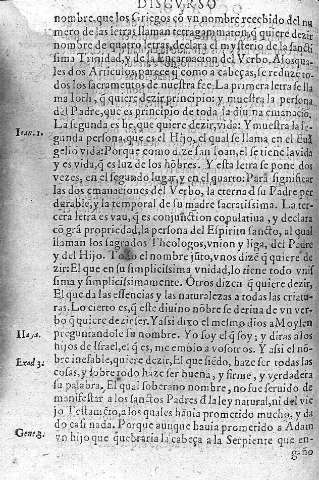 DISCVRSO
nombre, que los Griegos cõ vn nombre recebido del nu
mero de las letras llaman tetragammaton, q̃ quiere dezir
nombre de quatro letras, declara el mysterio de la sancti
ssima Trinidad, y de la Encarnacion del Verbo. A los qua-
les dos Articulos, parece q̃ como a cabeças, se reduzē to-
dos los sacramentos de nuestra fee. La primera letra se lla
ma Ioth, q̃ quiere dezir principio: y muestra la persona
del Padre, que es principio de toda la diuina emanaciõ.
La segunda es he, que quiere dezir, vida: Y muestra la se-
gunda persona, que es el Hijo, el qual se llama en el Euã
Ioan. 1.
gelio vida: Porque como dize san Ioan, el se tiene la vida
y es vida, q̃ es luz de los hõbres. Y esta letra se pone dos
vezes, en el segundo lugar, y en el quarto: Para significar
las dos emanaciones del Verbo, la eterna de su Padre per
durable, y la temporal de su madre sacratissima. La ter-
cera letra es vau, q̃ es conjunction copulatiua, y declara
cõ grã propriedad, la persona del Espiritu sancto, al qual
llaman los sagrados Theologos, vnion y liga, del Padre
y del Hijo. Todo el nombre jũto, vnos dizē q̃ quiere de
zir: El que en su simplicissima vnidad, lo tiene todo vnis
sima y simplicissimamente. Otros dizen q̃ quiere dezir,
El que da las essencias y las naturalezas a todas las criatu-
ras. Lo cierto es, q̃ este diuino nõbre se deriua de vn ver-
bo q̃ quiere dezir, ser. Y assi dixo el mesmo dios a Moysen
Haya.
preguntandole su nombre. Yo soy el q̃ soy: y diras a los
hijos de Israel, el q̃ es, me embio a vosotros. Y assi el nõ-
Exod 3.
bre inefable, quiere dezir, El que siēdo, haze ser todas las
cosas, y sobre todo haze ser buena, y firme, y verdadera
su palabra. El qual soberano nombre, no fue seruido de
manifestar a los sanctos Padres d̃ la ley natural, ni del vie
jo Testamēto, a los quales hauia prometido mucho, y da
do casi nada. Porque aunque hauia prometido a Adam
Gene. 3.
vn hijo que quebraria la cabeça a la Serpiente que en-
g-ño